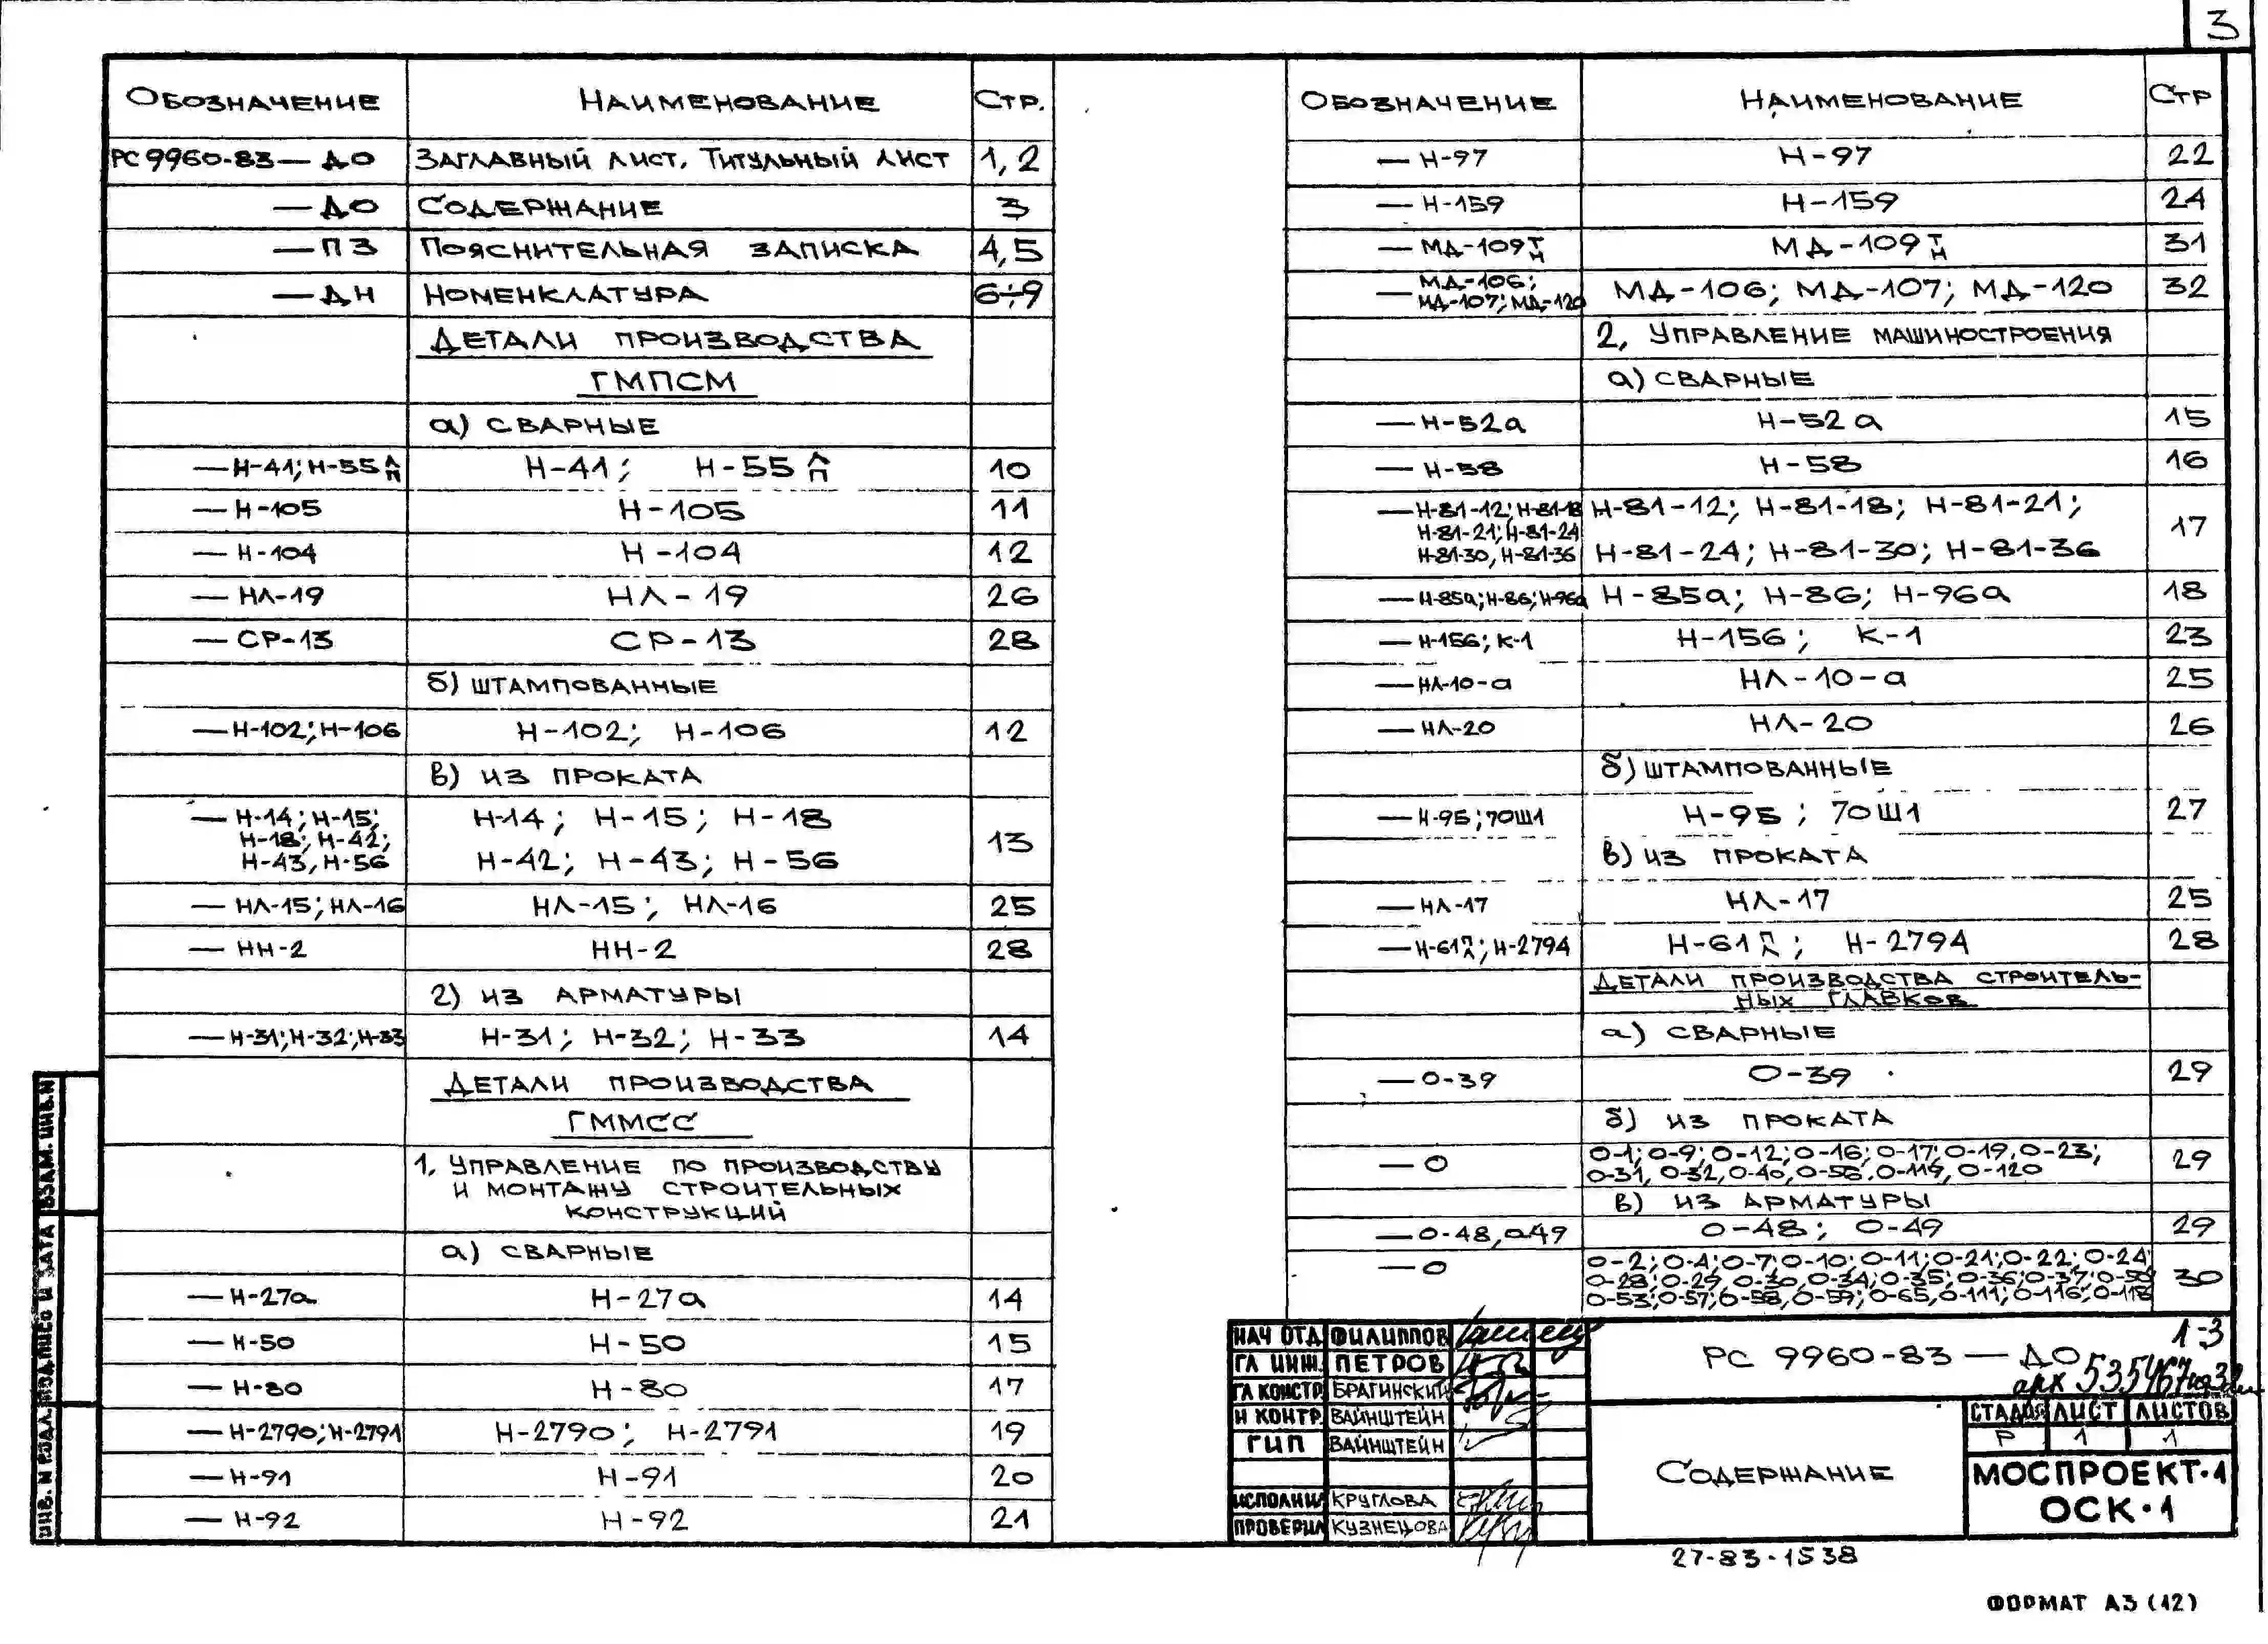 3
Обозначение Наименование Стр.
РС 9960-83 — ДО Заглавный лист. Титульный лист 1, 2
— ДО Содержание 3
— ПЗ Пояснительная записка 4, 5
— ДН Номенклатура 6÷9
Детали производства
ГМПСМ
а) сварные
— Н-41; Н-55 Л/П Н-41; Н-55 Л/П 10
— Н-105 Н-105 11
— Н-104 Н-104 12
— НЛ-19 НЛ-19 26
— СР-13 СР-13 28
б) штампованные
— Н-102; Н-106 Н-102; Н-106 12
в) из проката
— Н-14; Н-15; Н-14; Н-15; Н-18
Н-18; Н-42; 13
Н-43, Н-56 Н-42; Н-43; Н-56
— НЛ-15; НЛ-16 НЛ-15; НЛ-16 25
— НН-2 НН-2 28
г) из арматуры
— Н-31; Н-32; Н-33 Н-31; Н-32; Н-33 14
Детали производства
ГММСС
1. Управление по производству
и монтажу строительных
конструкций
а) сварные
— Н-27а Н-27а 14
— Н-50 Н-50 15
— Н-80 Н-80 17
— Н-2790; Н-2791 Н-2790; Н-2791 19
— Н-91 Н-91 20
— Н-92 Н-92 21
Обозначение Наименование Стр
— Н-97 Н-97 22
— Н-159 Н-159 24
— МД-109 Т/Н МД-109 Т/Н 31
— МД-106; МД-106; МД-107; МД-120 32
МД-107; МД-120
2, Управление машиностроения
а) сварные
— Н-52а Н-52а 15
— Н-58 Н-58 16
— Н-81-12; Н-81-18 Н-81-12; Н-81-18; Н-81-21;
Н-81-21; Н-81-24 17
Н-81-30, Н-81-36 Н-81-24; Н-81-30; Н-81-36
— Н-85а; Н-86; Н-96а Н-85а; Н-86; Н-96а 18
— Н-156; К-1 Н-156; К-1 23
— НЛ-10-а НЛ-10-а 25
— НЛ-20 НЛ-20 26
б) штампованные
— Н-95; 70Ш1 Н-95; 70Ш1 27
в) из проката
— НЛ-17 НЛ-17 25
— Н-61 П/Л; Н-2794 Н-61 П/Л; Н-2794 28
Детали производства строитель-
ных главков
а) сварные
— О-39 О-39 29
б) из проката
— О О-1; О-9; О-12; О-16; О-17; О-19, О-23; 29
О-31, О-32, О-40, О-56, О-119, О-120
в) из арматуры
— О-48, О-49 О-48; О-49 29
— О О-2; О-4; О-7; О-10; О-11; О-21; О-22; О-24; 30
О-28; О-29, О-30, О-34; О-35; О-36; О-37; О-50
О-53; О-57; О-58, О-59; О-65, О-111; О-116; О-118
НАЧ ОТД ФИЛИППОВ
ГЛ ИНЖ. ПЕТРОВ
ГЛ КОНСТР БРАГИНСКИЙ
Н КОНТР. ВАЙНШТЕЙН
ГИП ВАЙНШТЕЙН
ИСПОЛНИЛ КРУГЛОВА
ПРОВЕРИЛ КУЗНЕЦОВА
РС 9960-83 — ДО
1-3
арх 535467
Содержание
СТАДИЯ ЛИСТ ЛИСТОВ
Р 1 1
МОСПРОЕКТ-1
ОСК-1
27-83-1538
ФОРМАТ А3 (12)
ВЗАМ. ИНВ.N
ПОДПИСЬ И ДАТА
ИНВ. N ПОДЛ.